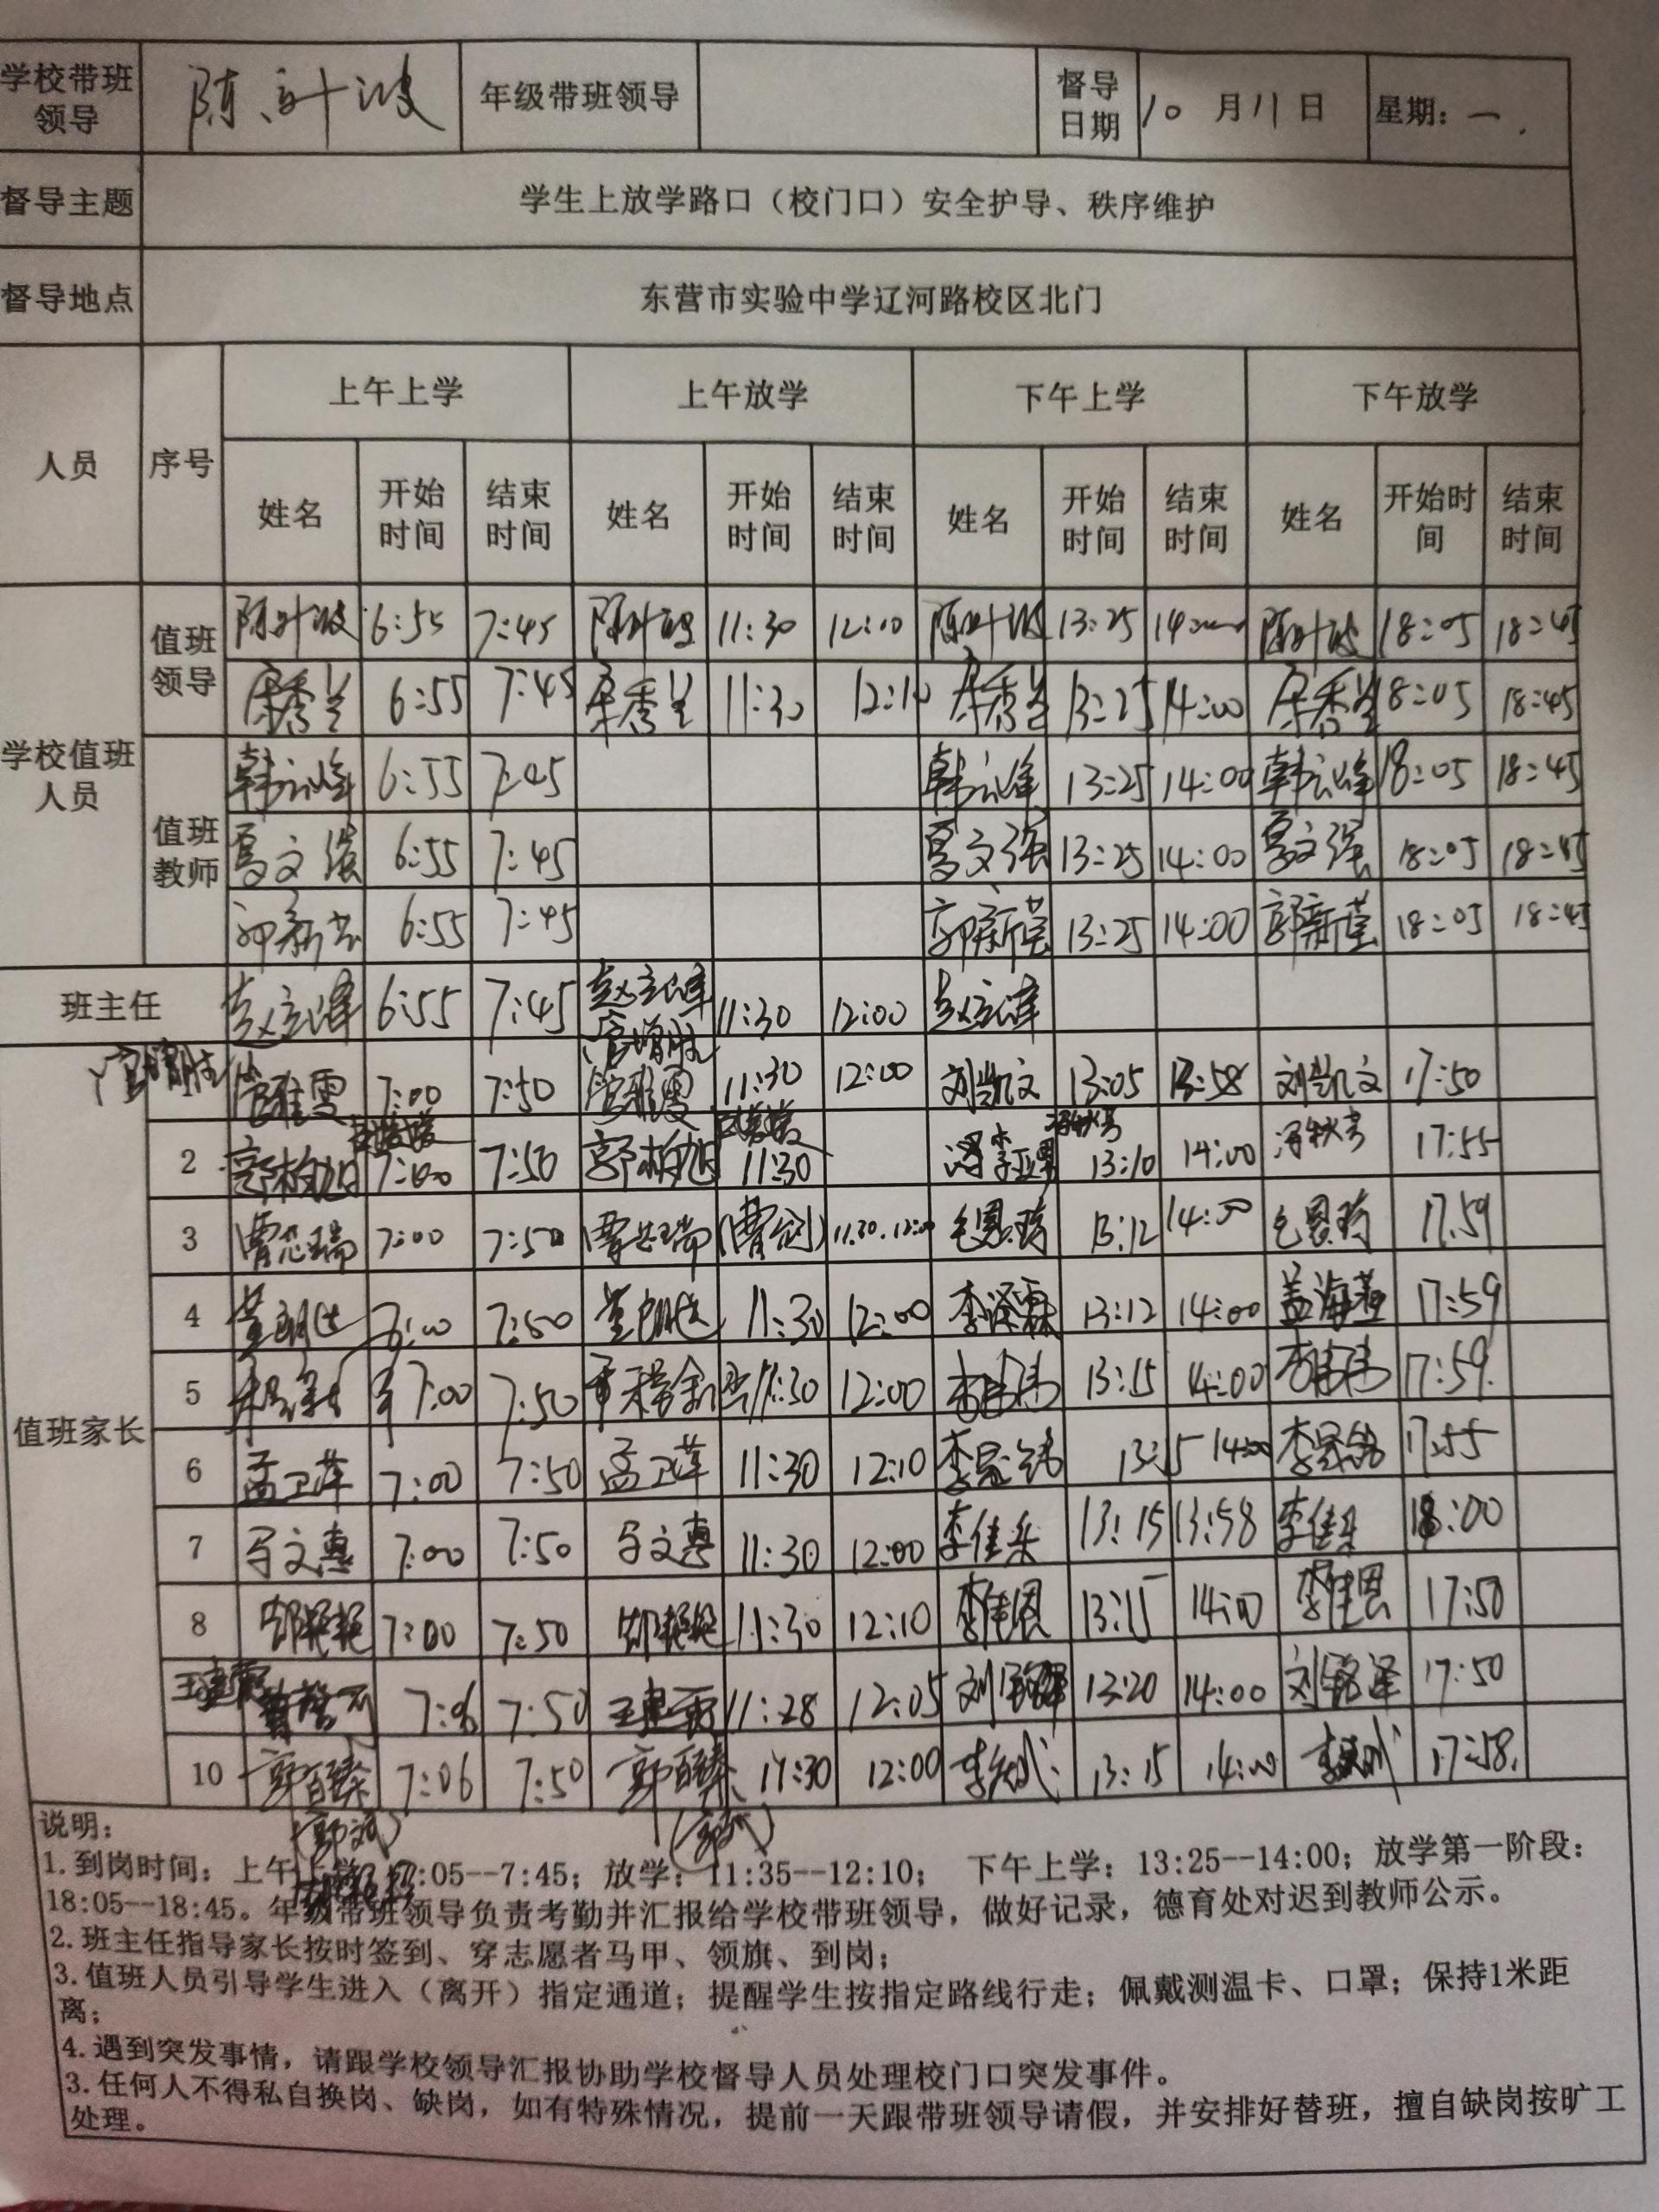 学校带班领导 陈叶波 年级带班领导 督导日期 10月11日 星期：一.
督导主题 学生上放学路口（校门口）安全护导、秩序维护
督导地点 东营市实验中学辽河路校区北门
人员 序号 上午上学 上午放学 下午上学 下午放学
姓名 开始时间 结束时间 姓名 开始时间 结束时间 姓名 开始时间 结束时间 姓名 开始时间 结束时间
学校值班人员 值班领导 陈叶波 6:55 7:45 陈叶波 11:30 12:10 陈叶波 13:25 陈叶波 18:05 18:45
秀兰 6:55 7:45 秀兰 11:30 12:10 秀兰 13:25 14:00 秀兰 18:05 18:45
值班教师 韩云峰 6:55 7:45 韩云峰 13:25 14:00 韩云峰 18:05 18:45
文强 6:55 7:45 文强 13:25 14:00 文强 18:05 18:45
郭新 6:55 7:45 郭新莹 13:25 14:00 郭新莹 18:05 18:45
班主任 赵立峰 6:55 7:45 赵立峰 11:30 12:00 赵立峰
值班家长 7:00 7:50 11:30 12:00 刘凯文 13:05 13:58 刘凯文 17:50
2 郭柏旭 7:00 7:50 郭柏旭 11:30 李亚男 13:10 14:00 冯秋芳 17:55
3 曹芯瑞 7:00 7:50 曹芯瑞 11:30.12:00 毛恩琦 13:12 14:00 毛恩琦 17.59
4 7:00 7:50 11:30 12:00 李泽霖 13:12 14:00 盖海燕 17:59
5 7:00 7:50 11:30 12:00 13:15 14:00 17:59.
6 孟卫萍 7:00 7:50 孟卫萍 11:30 12:10 李冠铭 13:15 14:00 17:55
7 马文惠 7:00 7:50 马文惠 11:30 12:00 李佳采 13:15 13:58 李佳采 18:00
8 7:00 7:50 11:30 12:10 李佳恩 13:15 14:00 李佳恩 17:50
7:06 7:50 11:28 12:05 刘铭泽 13:20 14:00 刘铭泽 17:50
10 郭百臻 7:06 7:50 郭百臻 11:30 12:00 13:15 14:00 17:58.
说明：
1.到岗时间：上午上学：7:05--7:45；放学：11:35--12:10； 下午上学：13:25--14:00；放学第一阶段：
18:05--18:45。年级带班领导负责考勤并汇报给学校带班领导，做好记录，德育处对迟到教师公示。
2.班主任指导家长按时签到、穿志愿者马甲、领旗、到岗；
3.值班人员引导学生进入（离开）指定通道；提醒学生按指定路线行走；佩戴测温卡、口罩；保持1米距
离；
4.遇到突发事情，请跟学校领导汇报协助学校督导人员处理校门口突发事件。
3.任何人不得私自换岗、缺岗，如有特殊情况，提前一天跟带班领导请假，并安排好替班，擅自缺岗按旷工
处理。